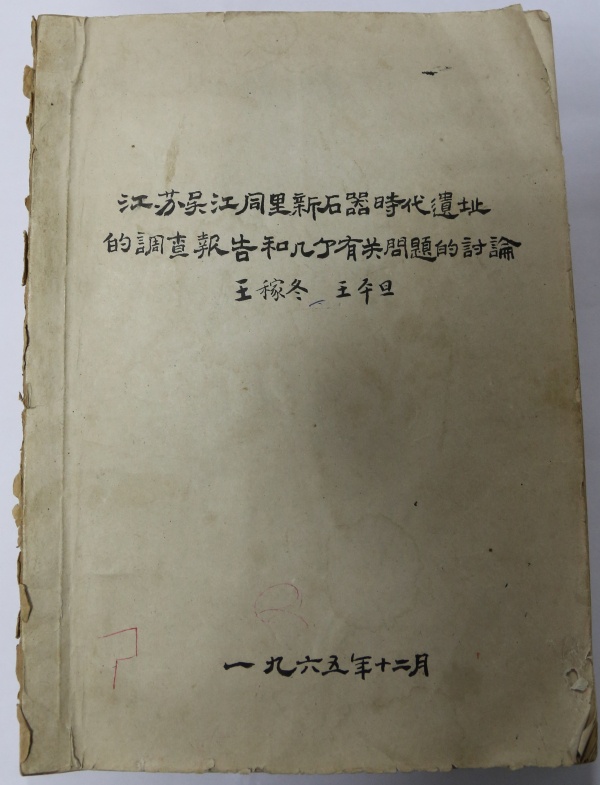 江苏吴江同里新石器時代遺址
的調查報告和几个有关問題的討論
王稼冬 王平旦
一九六五年十二月